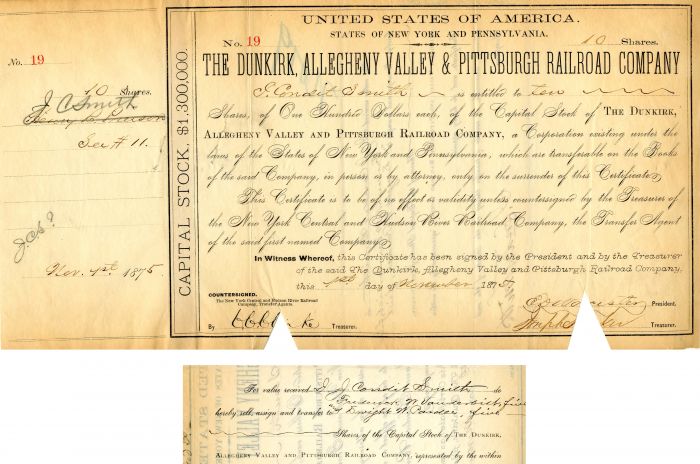 No. 19
10 Shares.
J C Smith
See # 11.
Nov. 1st. 1875.
CAPITAL STOCK. $1,300,000.
UNITED STATES OF AMERICA.
STATES OF NEW YORK AND PENNSYLVANIA.
No. 19 10 Shares.
THE DUNKIRK, ALLEGHENY VALLEY & PITTSBURGH RAILROAD COMPANY
Condit Smith is entitled to ten
Shares, of One Hundred Dollars each, of the Capital Stock of THE DUNKIRK,
ALLEGHENY VALLEY AND PITTSBURGH RAILROAD COMPANY, a Corporation existing under the
laws of the States of New York and Pennsylvania, which are transferable on the Books
of the said Company, in person or by attorney, only on the surrender of this Certificate.
This Certificate is to be of no effect or validity unless countersigned by the Treasurer of
the New York Central and Hudson River Railroad Company, the Transfer Agent
of the said first named Company.
In Witness Whereof, this Certificate has been signed by the President and by the Treasurer
of the said The Dunkirk, Allegheny Valley and Pittsburgh Railroad Company,
this 1st day of November 1875.
COUNTERSIGNED.
The New York Central and Hudson River Railroad
Company, Transfer Agents.
By Treasurer.
President.
Treasurer.
For value received I J Condit Smith do
Frederick W. Vanderbilt, five
hereby sell, assign and transfer to Dwight W. Pardee, five
Shares of the Capital Stock of THE DUNKIRK,
ALLEGHENY VALLEY AND PITTSBURGH RAILROAD COMPANY, represented by the within